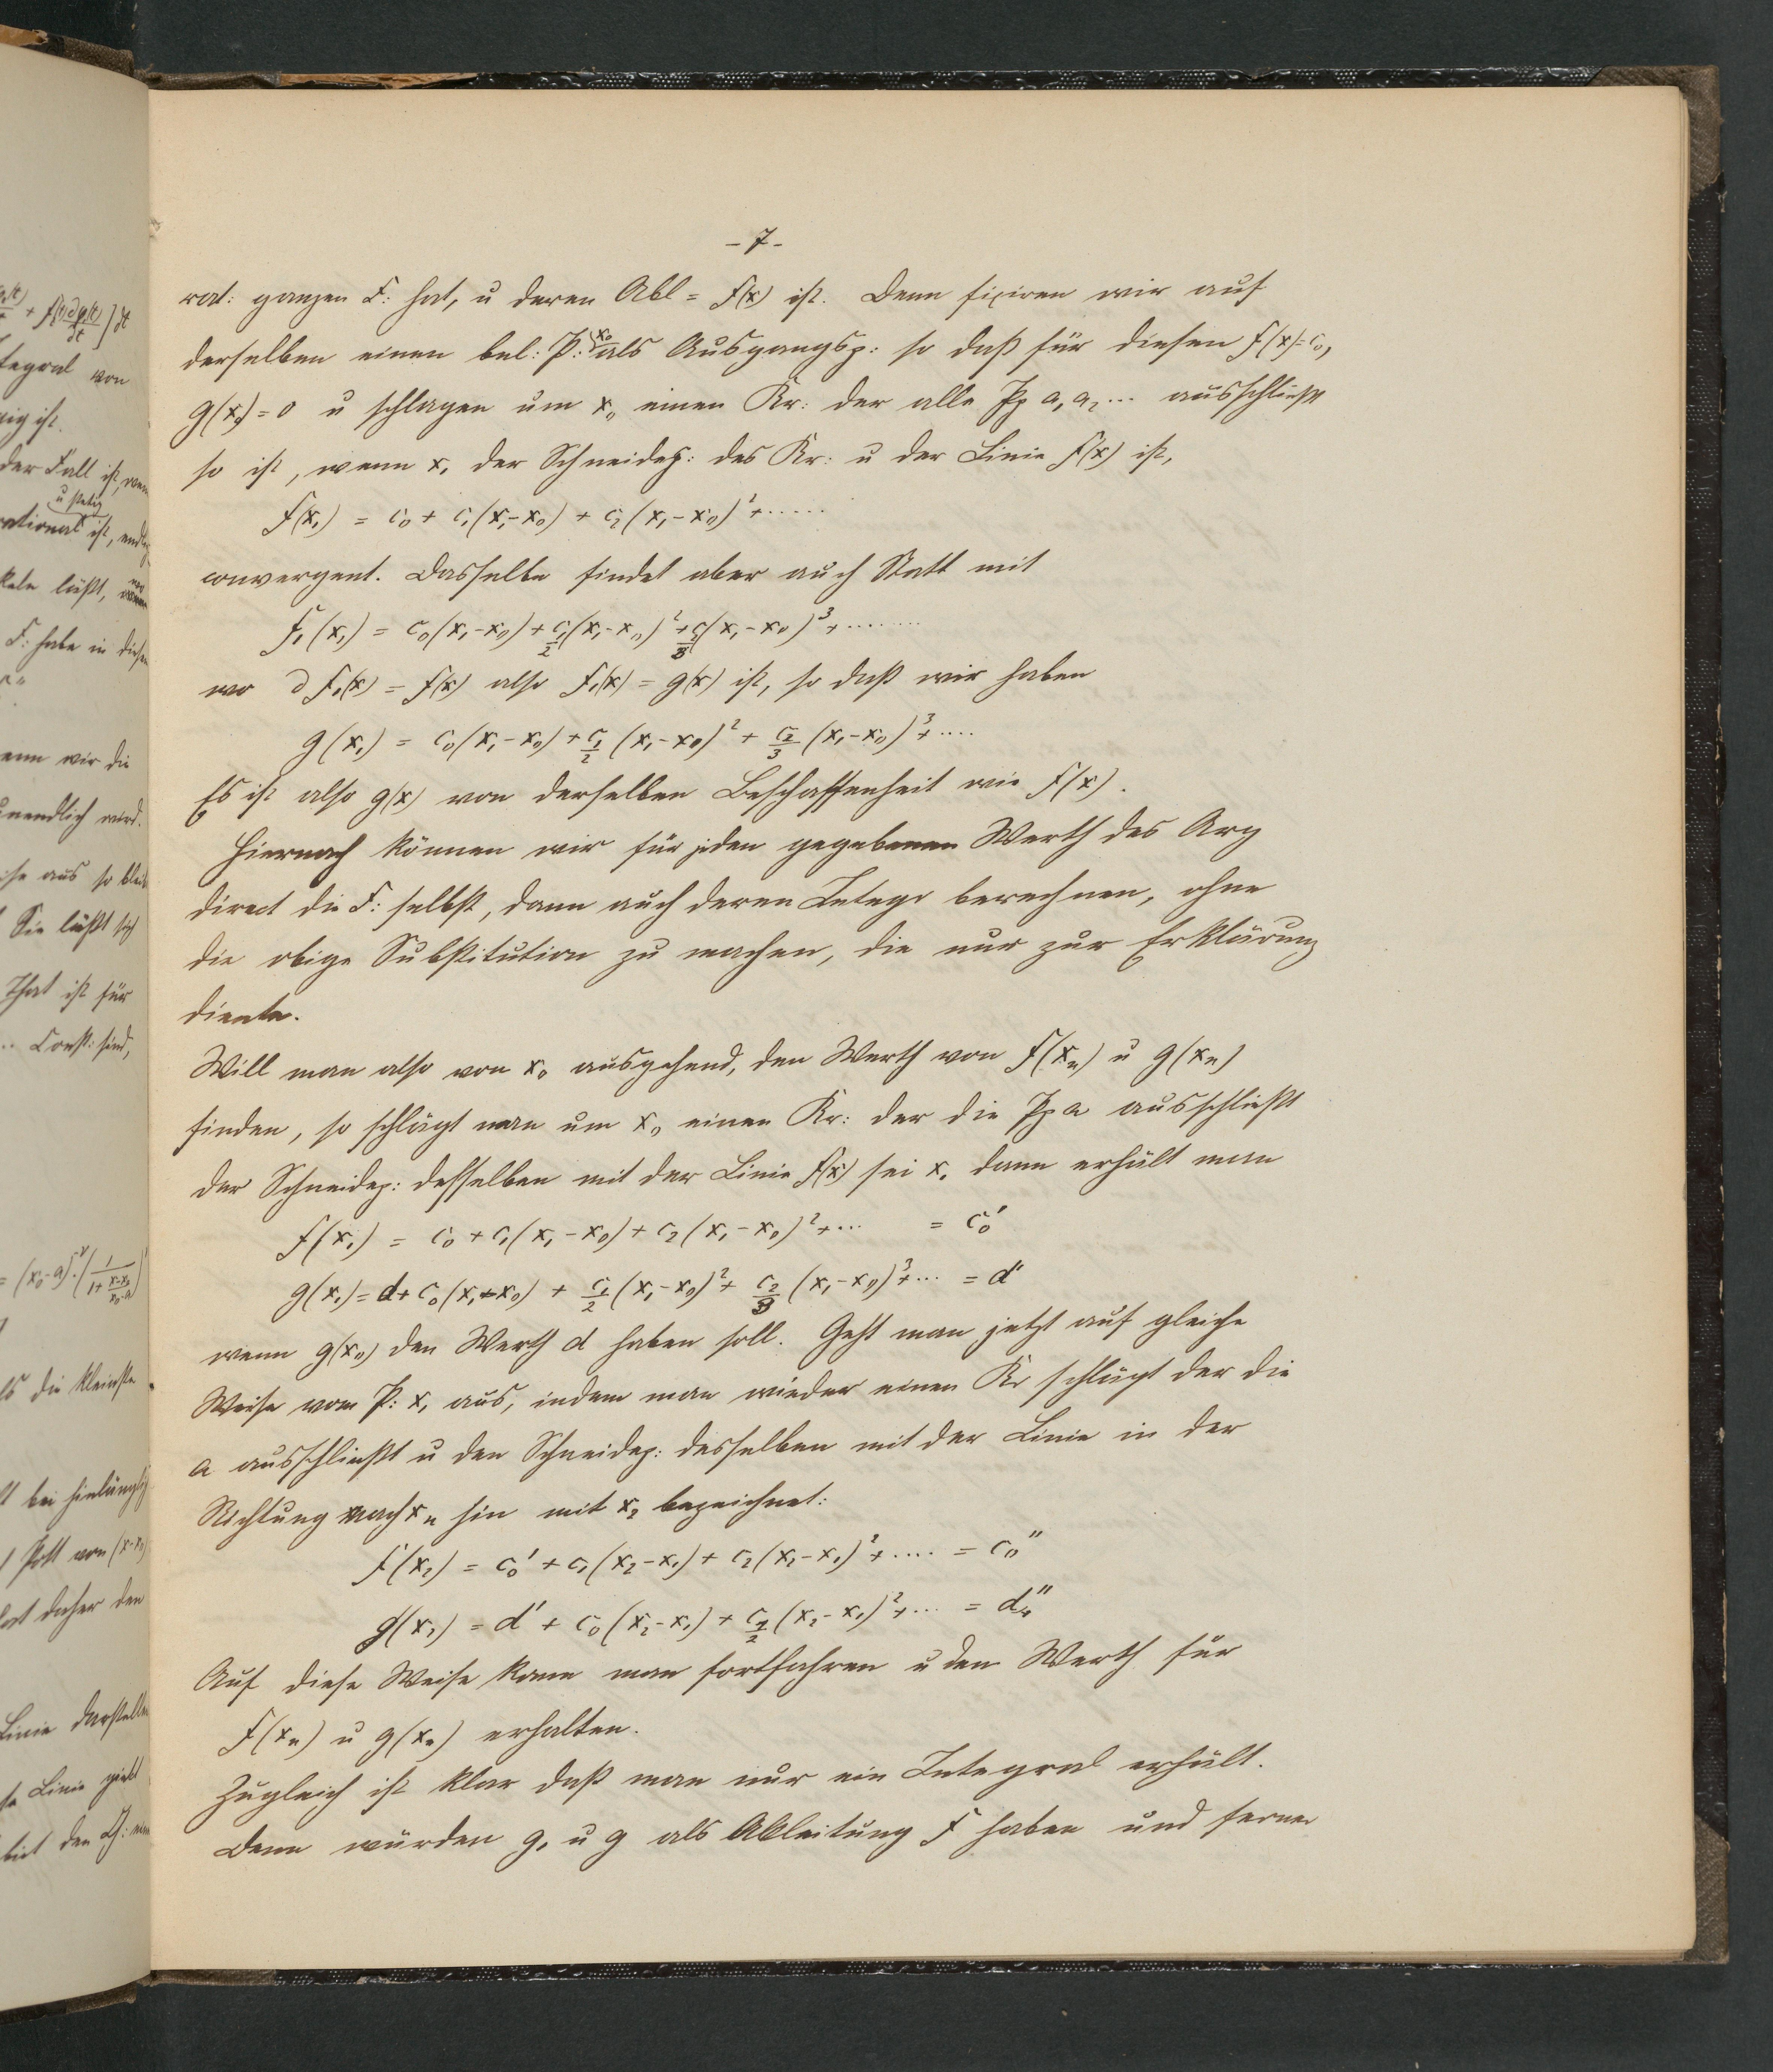 - 7 -
rat: ganzen F: hat, u deren Abl = f(x) ist. Denn fixiren wir auf
derselben einen bel: P: x₀ als Ausgangsp: so daß für diesen f(x) = c₀,
g(x₀) = 0 u schlagen um x₀ einen Kr: der alle Pp a₁ a₂ ... ausschließt
so ist, wenn x₁ der Schneidep: des Kr: u der Linie f(x) ist,
f(x₁) = c₀ + c₁(x₁-x₀) + c₂(x₁-x₀)² + ......
convergent. Dasselbe findet aber auch Statt mit
f₁(x₁) = c₀(x₁-x₀) + c₁/2(x₁-x₀)² + c₂/3(x₁-x₀)³ + ........
wo ∂f₁(x) = f(x) also f₁(x) = g(x) ist, so daß wir haben
g(x₁) = c₀(x₁-x₀) + c₁/2 (x₁-x₀)² + c₂/3 (x₁-x₀)³ + ....
Es ist also g(x) von derselben Beschaffenheit wie f(x).
Hiernach können wir für jeden gegebenen Werth des Arg
direct die F: selbst, dann auch deren Integr berechnen, ohne
die obige Substitution zu machen, die nur zur Erklärung
diente.
Will man also von x₀ ausgehend, den Werth von f(xₙ) u g(xₙ)
finden, so schlägt man um x₀ einen Kr: der die Pp a ausschließt
der Schneidep: desselben mit der Linie f(x) sei x₁ dann erhält man
f(x₁) = c₀ + c₁(x₁-x₀) + c₂(x₁-x₀)² + ... = c₀'
g(x₁) = d + c₀(x₁-x₀) + c₁/2 (x₁-x₀)² + c₂/3 (x₁-x₀)³ + ... = d'
wenn g(x₀) den Werth d haben soll. Geht man jetzt auf gleiche
Weise vom P: x₁ aus, indem man wieder einen Kr schlägt der die
a ausschließt u den Schneidep: desselben mit der Linie in der
Richtung nach xₙ hin mit x₂ bezeichnet:
f(x₂) = c₀' + c₁(x₂-x₁) + c₂(x₂-x₁)² + .... = c₀''
g(x₂) = d' + c₀(x₂-x₁) + c₁/2 (x₂-x₁)² + ... = d''
Auf diese Weise kann man fortfahren u den Werth für
f(xₙ) u g(xₙ) erhalten.
Zugleich ist klar daß man nur ein Integral erhält.
Denn würden g₁ u g als Ableitung f haben und ferner